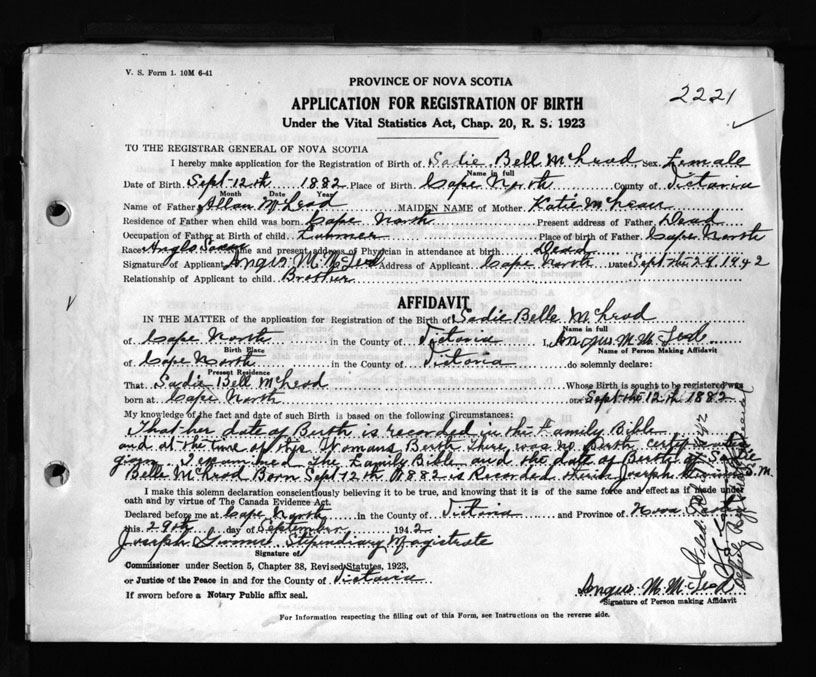 V. S. Form 1. 10M 6-41
PROVINCE OF NOVA SCOTIA
2221
APPLICATION FOR REGISTRATION OF BIRTH
Under the Vital Statistics Act, Chap. 20, R. S. 1923
TO THE REGISTRAR GENERAL OF NOVA SCOTIA
I hereby make application for the Registration of Birth of Sadie Bell McLeod Sex Female
Name in full
Date of Birth Sept 12th 1882 Place of Birth Cape North County of Victoria
Month Date Year
Name of Father Allan McLeod MAIDEN NAME of Mother Katie McLean
Residence of Father when child was born Cape North Present address of Father Dead
Occupation of Father at Birth of child Farmer Place of birth of Father Cape North
Race Anglo Saxon Name and present address of Physician in attendance at birth Dead
Signature of Applicant Angus M. McLeod Address of Applicant Cape North Date Sept the 29 1942
Relationship of Applicant to child Brother
AFFIDAVIT
IN THE MATTER of the application for Registration of the Birth of Sadie Belle McLeod
Name in full
of Cape North in the County of Victoria I, Angus M. McLeod
Birth Place Name of Person Making Affidavit
of Cape North in the County of Victoria do solemnly declare:
Present Residence
That Sadie Bell McLeod Whose Birth is sought to be registered was
born at Cape North on Sept the 12th 1882
My knowledge of the fact and date of such Birth is based on the following Circumstances:
That her date of Birth is recorded in the Family Bible
and at the time of this Womans Birth There was no Birth certificates
given I examined The Family Bible and the date of Birth of Sadie
Belle McLeod Born Sept 12th 1882 is Recorded therein Joseph S.M.
I make this solemn declaration conscientiously believing it to be true, and knowing that it is of the same force and effect as if made under
oath and by virtue of The Canada Evidence Act.
Declared before me at Cape North in the County of Victoria and Province of Nova Scotia
this 29th day of September 1942
Joseph Stipendiary Magistrate
Signature of
Commissioner under Section 5, Chapter 38, Revised Statutes, 1923,
or Justice of the Peace in and for the County of Victoria
If sworn before a Notary Public affix seal.
Angus M. McLeod
Signature of Person making Affidavit
For Information respecting the filling out of this Form, see Instructions on the reverse side.
Filed
Deputy Registrar General